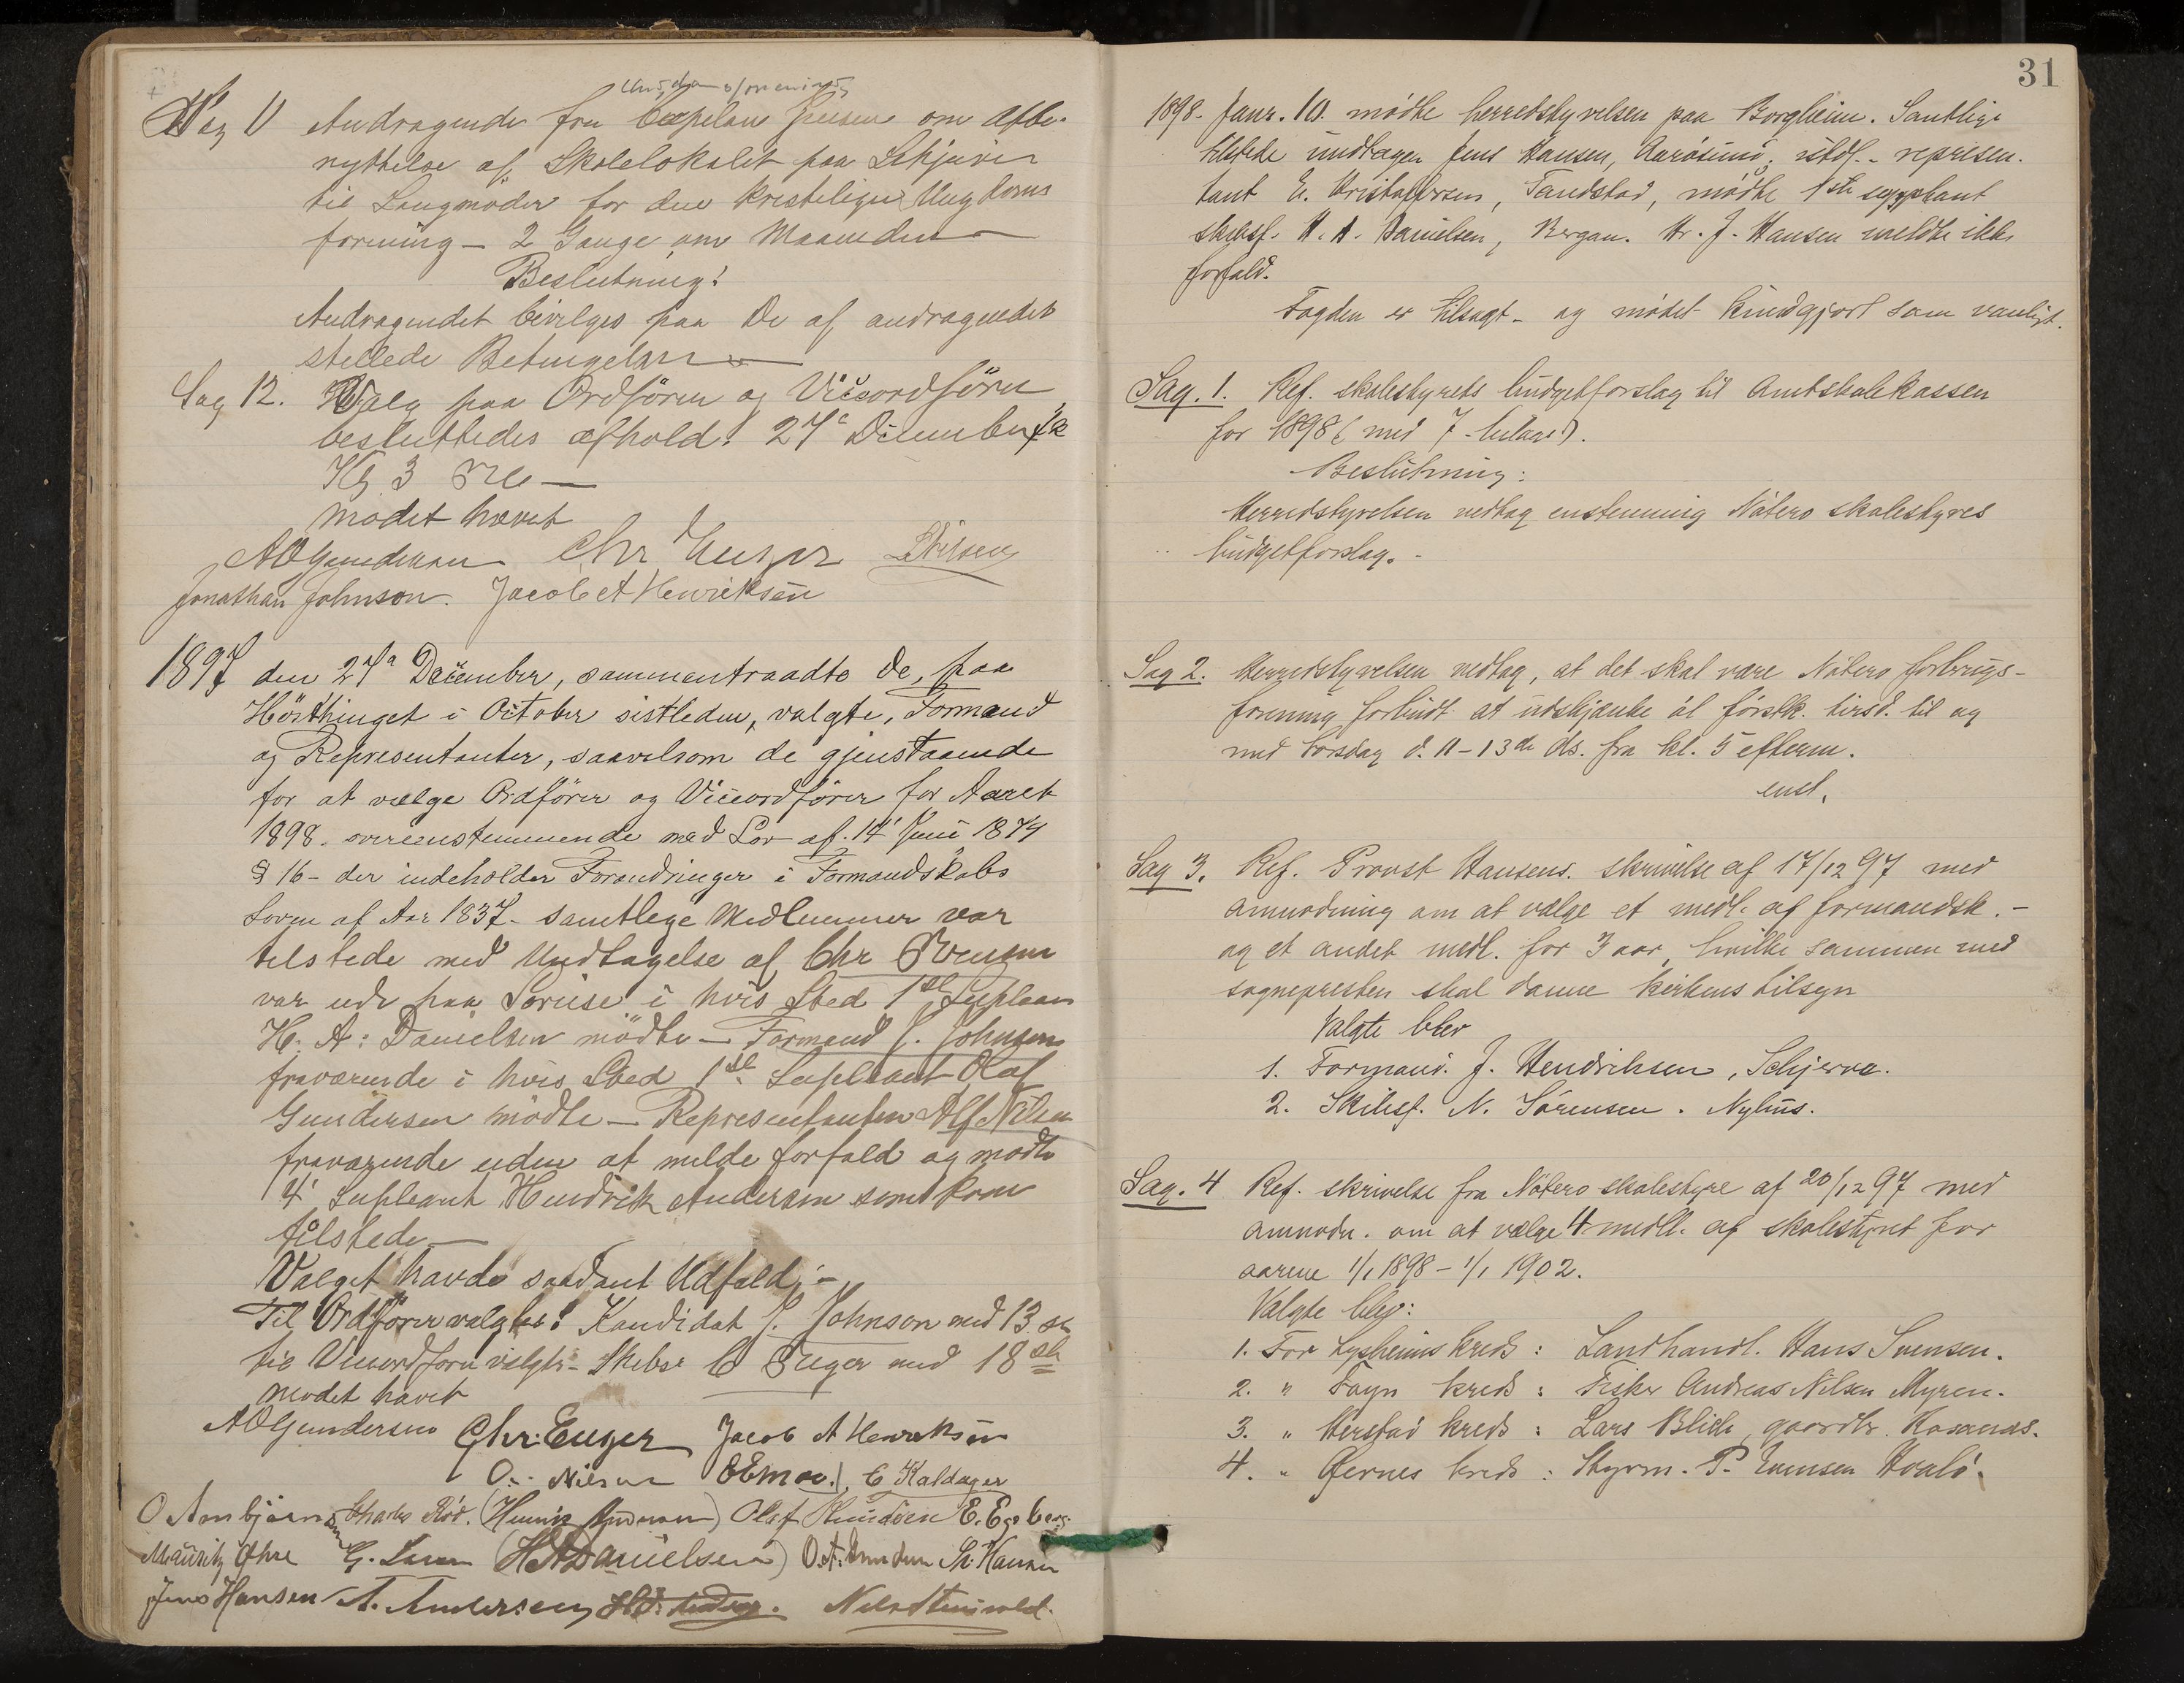 Sag 11 Andragende fra Capelan Jensen om Afbe-
nyttelse af Skolelokalet paa Skjerve
til Sangmöder for den kristelige Ungdoms
forening - 2 Gange om Maaneden
Beslutning:
Andragendet bevilges paa De af andragendet
stellede Betingelser
Sag 12. Valg paa Ordförer og Viceordförer
besluttedes afhold. 27e December
Kl 3
mödet hævet
AOGundersen Chr Euger Nilsen
Jonathan Johnson. Jacob A Henriksen
1897 den 27a December, sammentraadte De, paa
Hösthinget i October sistleden, valgte, Formænd
og Representanter, saavelsom de gjenstaaende
for at vælge Ordförer og Viceordförer for Aaret
1898. overeenstemmende med Lov af. 14' Juni 1874
§ 16 - der indeholder Forandringer i Formandskabs
Loven af Aar 1837 - samtlege Medlemmer var
tilstede med Undtagelse af Chr Svensen
var ude paa Soreise i hvis Sted 1ste Supleant
H. A: Danielsen mödte - Formand J. Johnson
fraværende i hvis Sted 1ste Supleant Olaf
Gundersen mödte - Representanten Alf Nilsen
fraværende uden at melde forfald og mödte
4' Supleant Hendrik Andersen som kom
tilstede
Valget havde saadant Udfald:-
Til Ordförer valgtes: Kandidat J. Johnson med 13 st
til Viceordförer valgte - Skibsr C Euger med 18 st
mödet hævet
AOGundersen Chr: Euger Jacob A Henriksen
O. Nilsen C Kaldager
O Arnbjörnsen Charles Röd. (Henrik Andersen) Olaf Gundersen E. Egeberg
Mauritz Öhre G. Larsen (HADanielsen) O.A. Amundsen Th. Hansen
Jens Hansen A. Andersen Nils Stensvold.
31
1898. Janr. 10. mödte herredstyrelsen paa Borgheim. Samtlige
tilstede undtagen Jens Hansen, Aarösund; istdf. represen-
tant E. Kristoffersen, Tandstad, mödte 1ste suppleant
skibsf. H. A. Danielsen, Bergan. Hr. J. Hansen meldte ikke
forfald.
Fogden er tilsagt - og mödet kundgjort som vanligt.
Sag. 1. Ref. skolestyrets budgetforslag til Amtskolekassen
for 1898 (med 7 bilage).
Beslutning:
Herredstyrelsen vedtog enstemmig Nötero skolestyres
budgetforslag. -
Sag 2. Herredstyrelsen vedtog, at det skal være Nötero forbrugs-
forening forbudt at udskjænke öl förstk. tirsd. til og
med torsdag d. 11 - 13de ds. fra kl. 5 efterm.
enst.
Sag 3. Ref. Provst Hansens. skrivelse af 17/12 97 med
anmodning om at vælge et medl. af formandsk. -
og et andet medl. for 3 aar, hvilke sammen med
sognepresten skal danne kirkens tilsyn
Valgte blev
1. Formand. J. Hendriksen, Schjerve.
2. Skibsf. N. Sörensen. Nyhus.
Sag. 4 Ref. skrivelse fra Nötero skolestyre af 20/12 97 med
anmodn. om at vælge 4 medl. af skolestyret for
aarene 1/1 1898 - 1/1 1902.
Valgte blev:
1. For Lysheims kreds: Landhandl. Hans Svensen.
2. " Fögn kreds: Fisker Andreas Nilsen Myren.
3. " Herstad kreds: Lars Blich, gaardbr. Kosanas.
4. " Öernes kreds: Styrm. P. Evensen Hvalö.